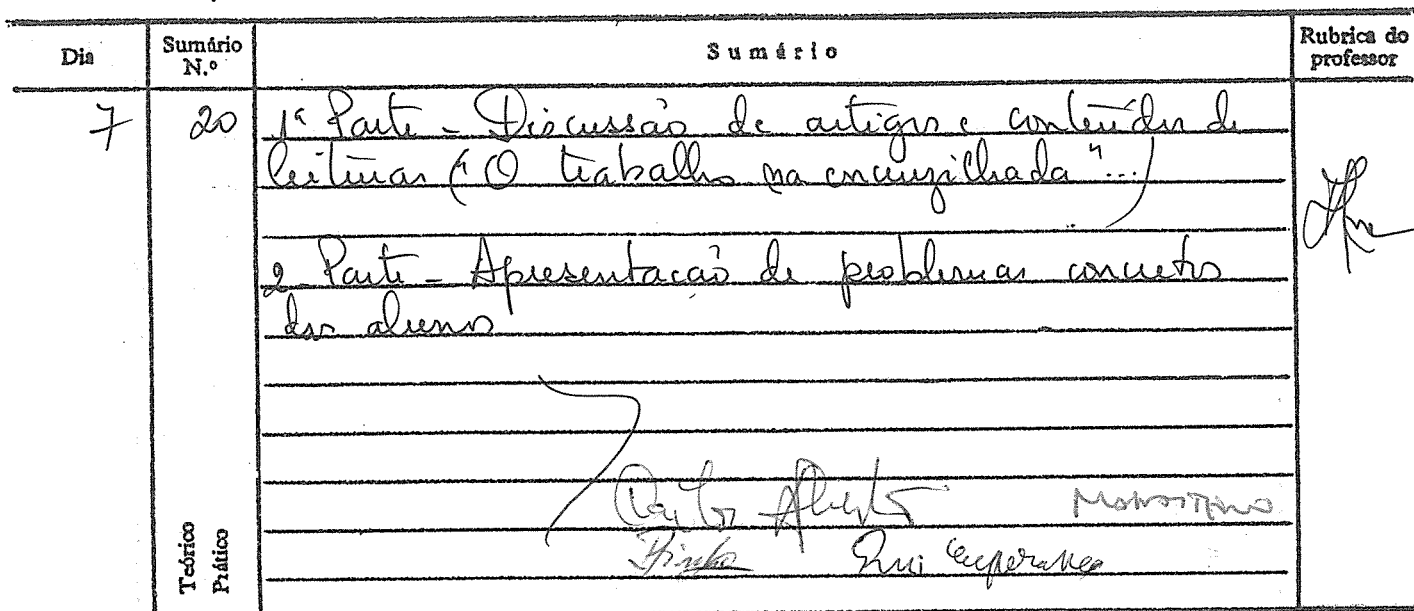 Dia Sumário N.º Sumário Rubrica do professor
7 20 1ª Parte - Discussão de artigos e conteúdos de
leituras ("O trabalho na encruzilhada"...)
2- Parte - Apresentação de problemas concretos
dos alunos
Carlos Alberto
Pinho Rui Esperança
Teórico
Prático